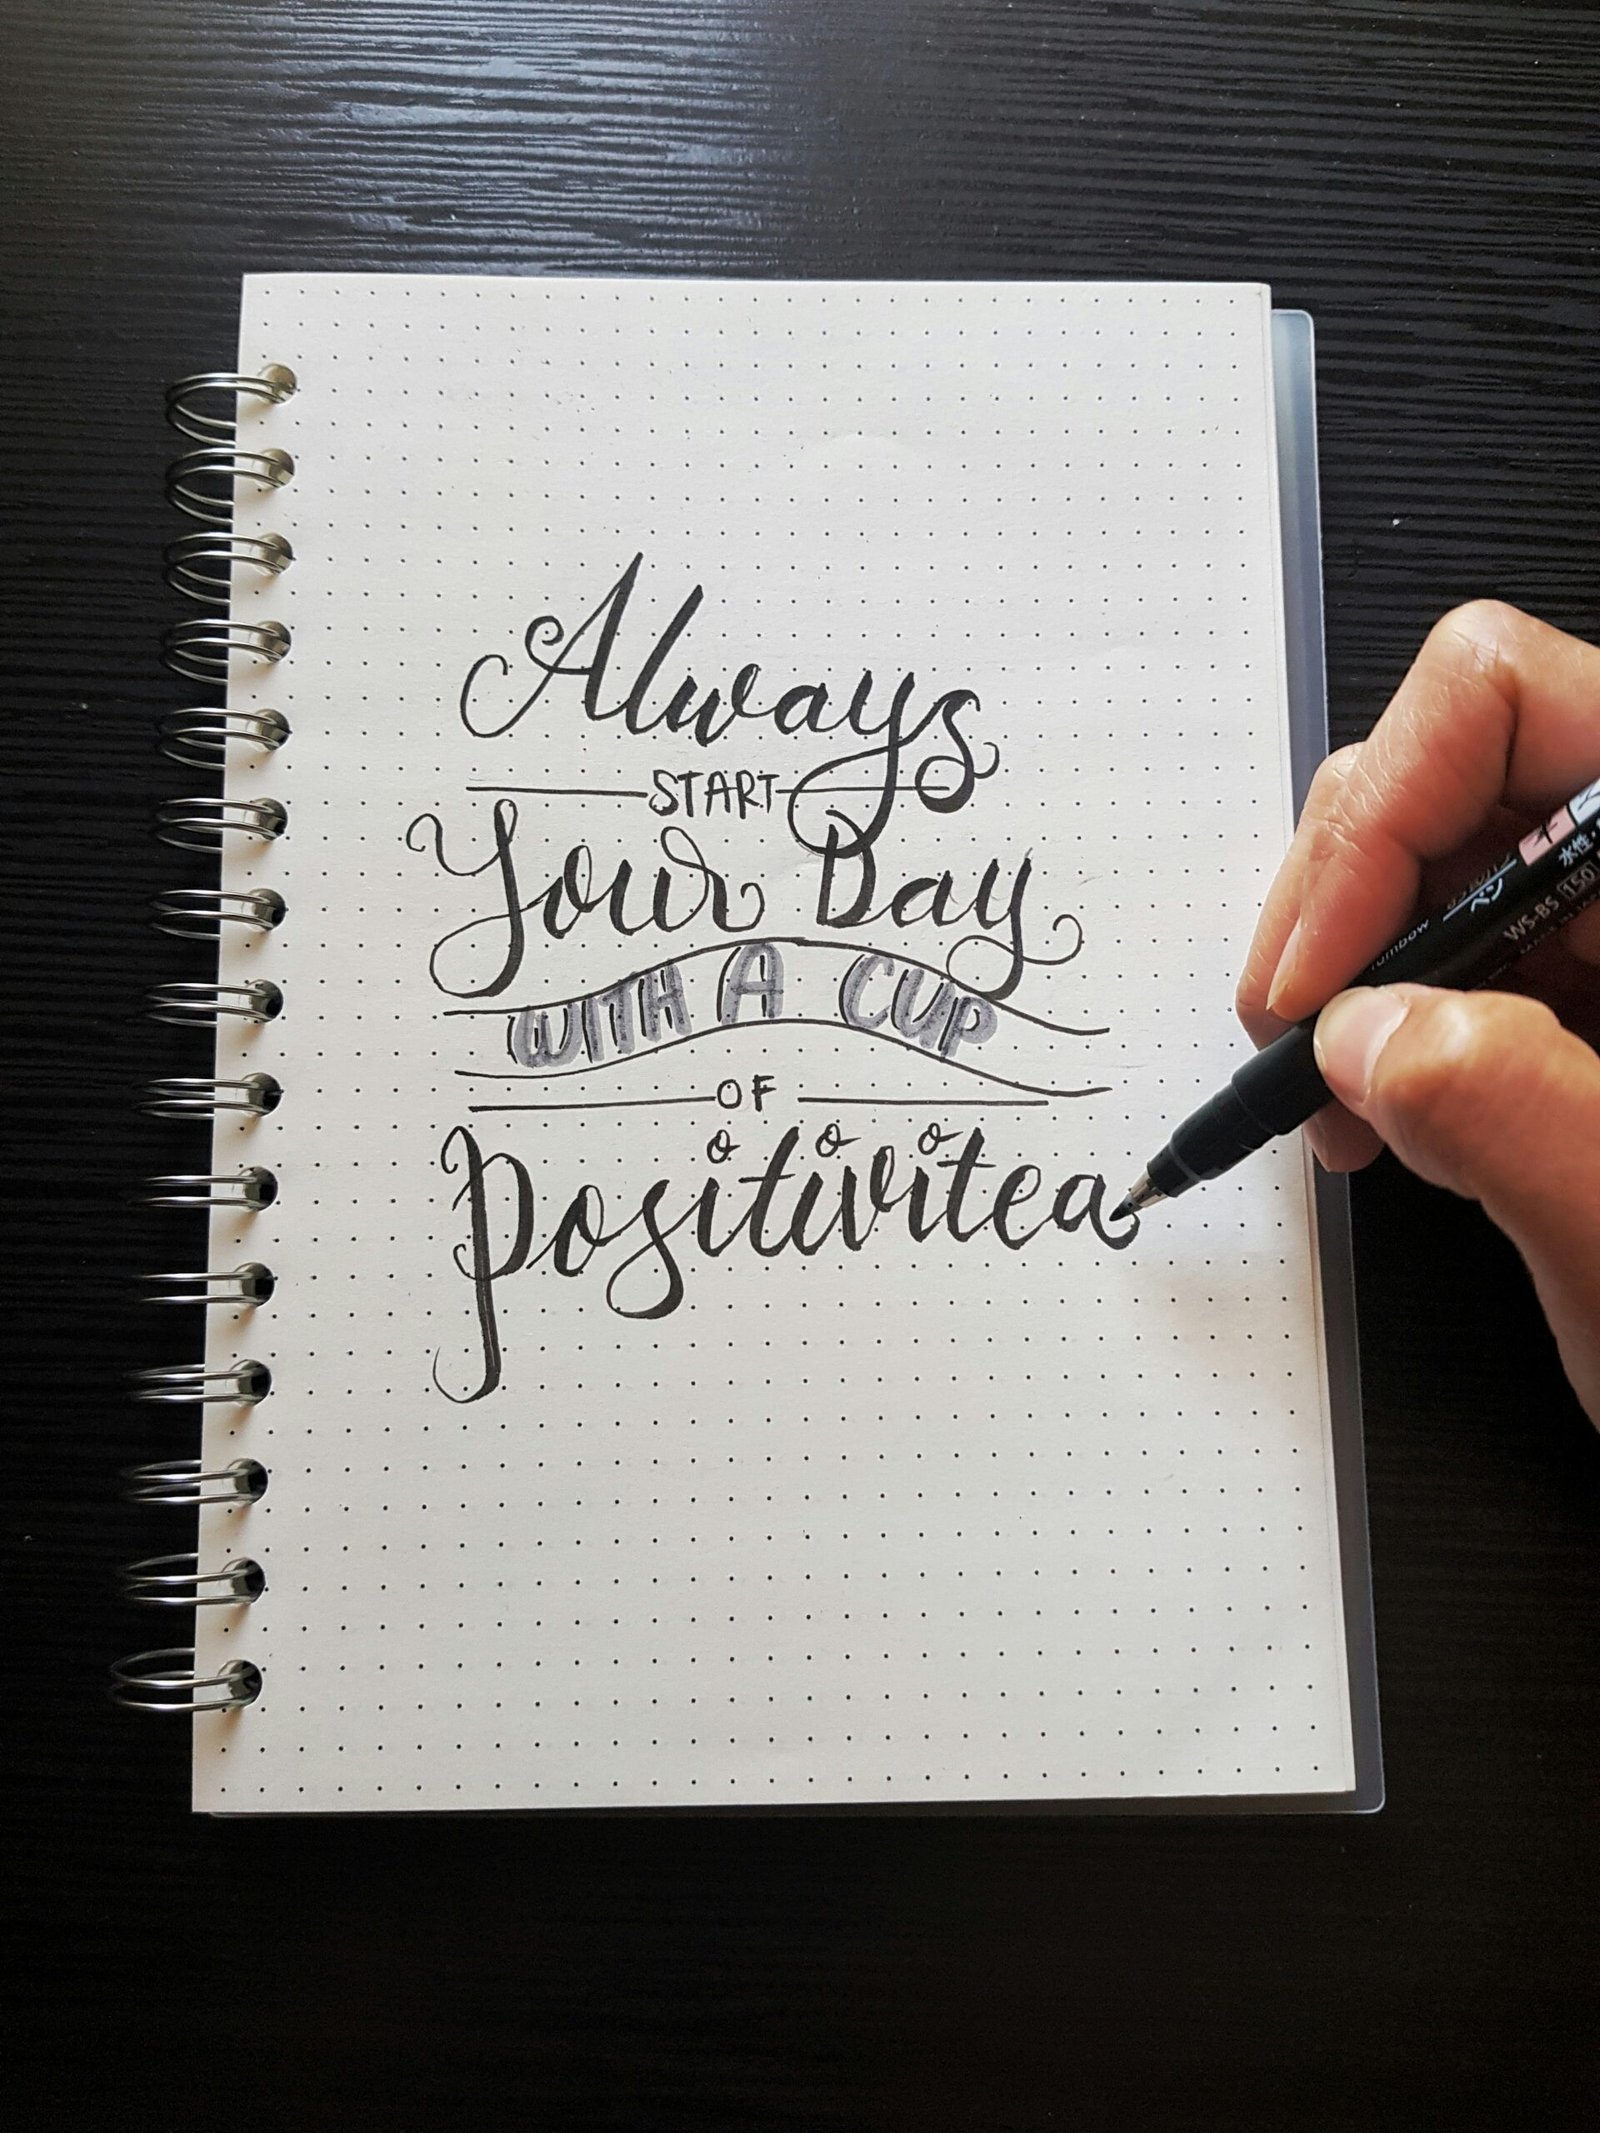 Always
START
Your Day
WITH A CUP
OF
Positivitea
Tombow
WS-BS 150